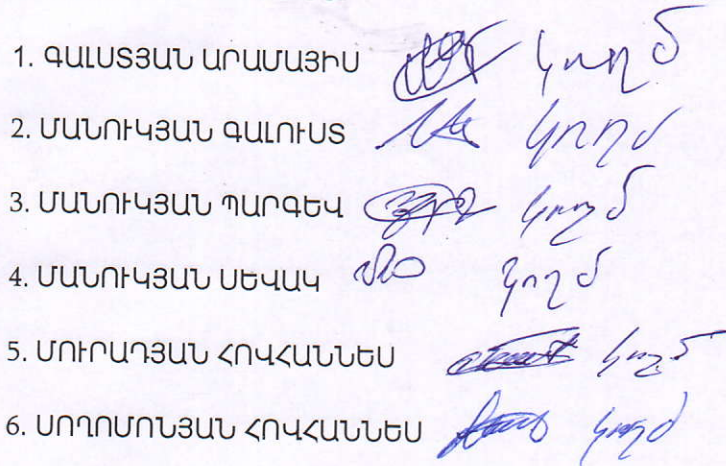 1. ԳԱԼՍՏՅԱՆ ԱՐԱՄԱՅԻՍ կողմ
2. ՄԱՆՈՒԿՅԱՆ ԳԱԼՈՒՍՏ կողմ
3. ՄԱՆՈՒԿՅԱՆ ՊԱՐԳԵՎ կողմ
4. ՄԱՆՈՒԿՅԱՆ ՍԵՎԱԿ կողմ
5. ՄՈՒՐԱԴՅԱՆ ՀՈՎՀԱՆՆԵՍ կողմ
6. ՍՈՂՈՄՈՆՅԱՆ ՀՈՎՀԱՆՆԵՍ կողմ